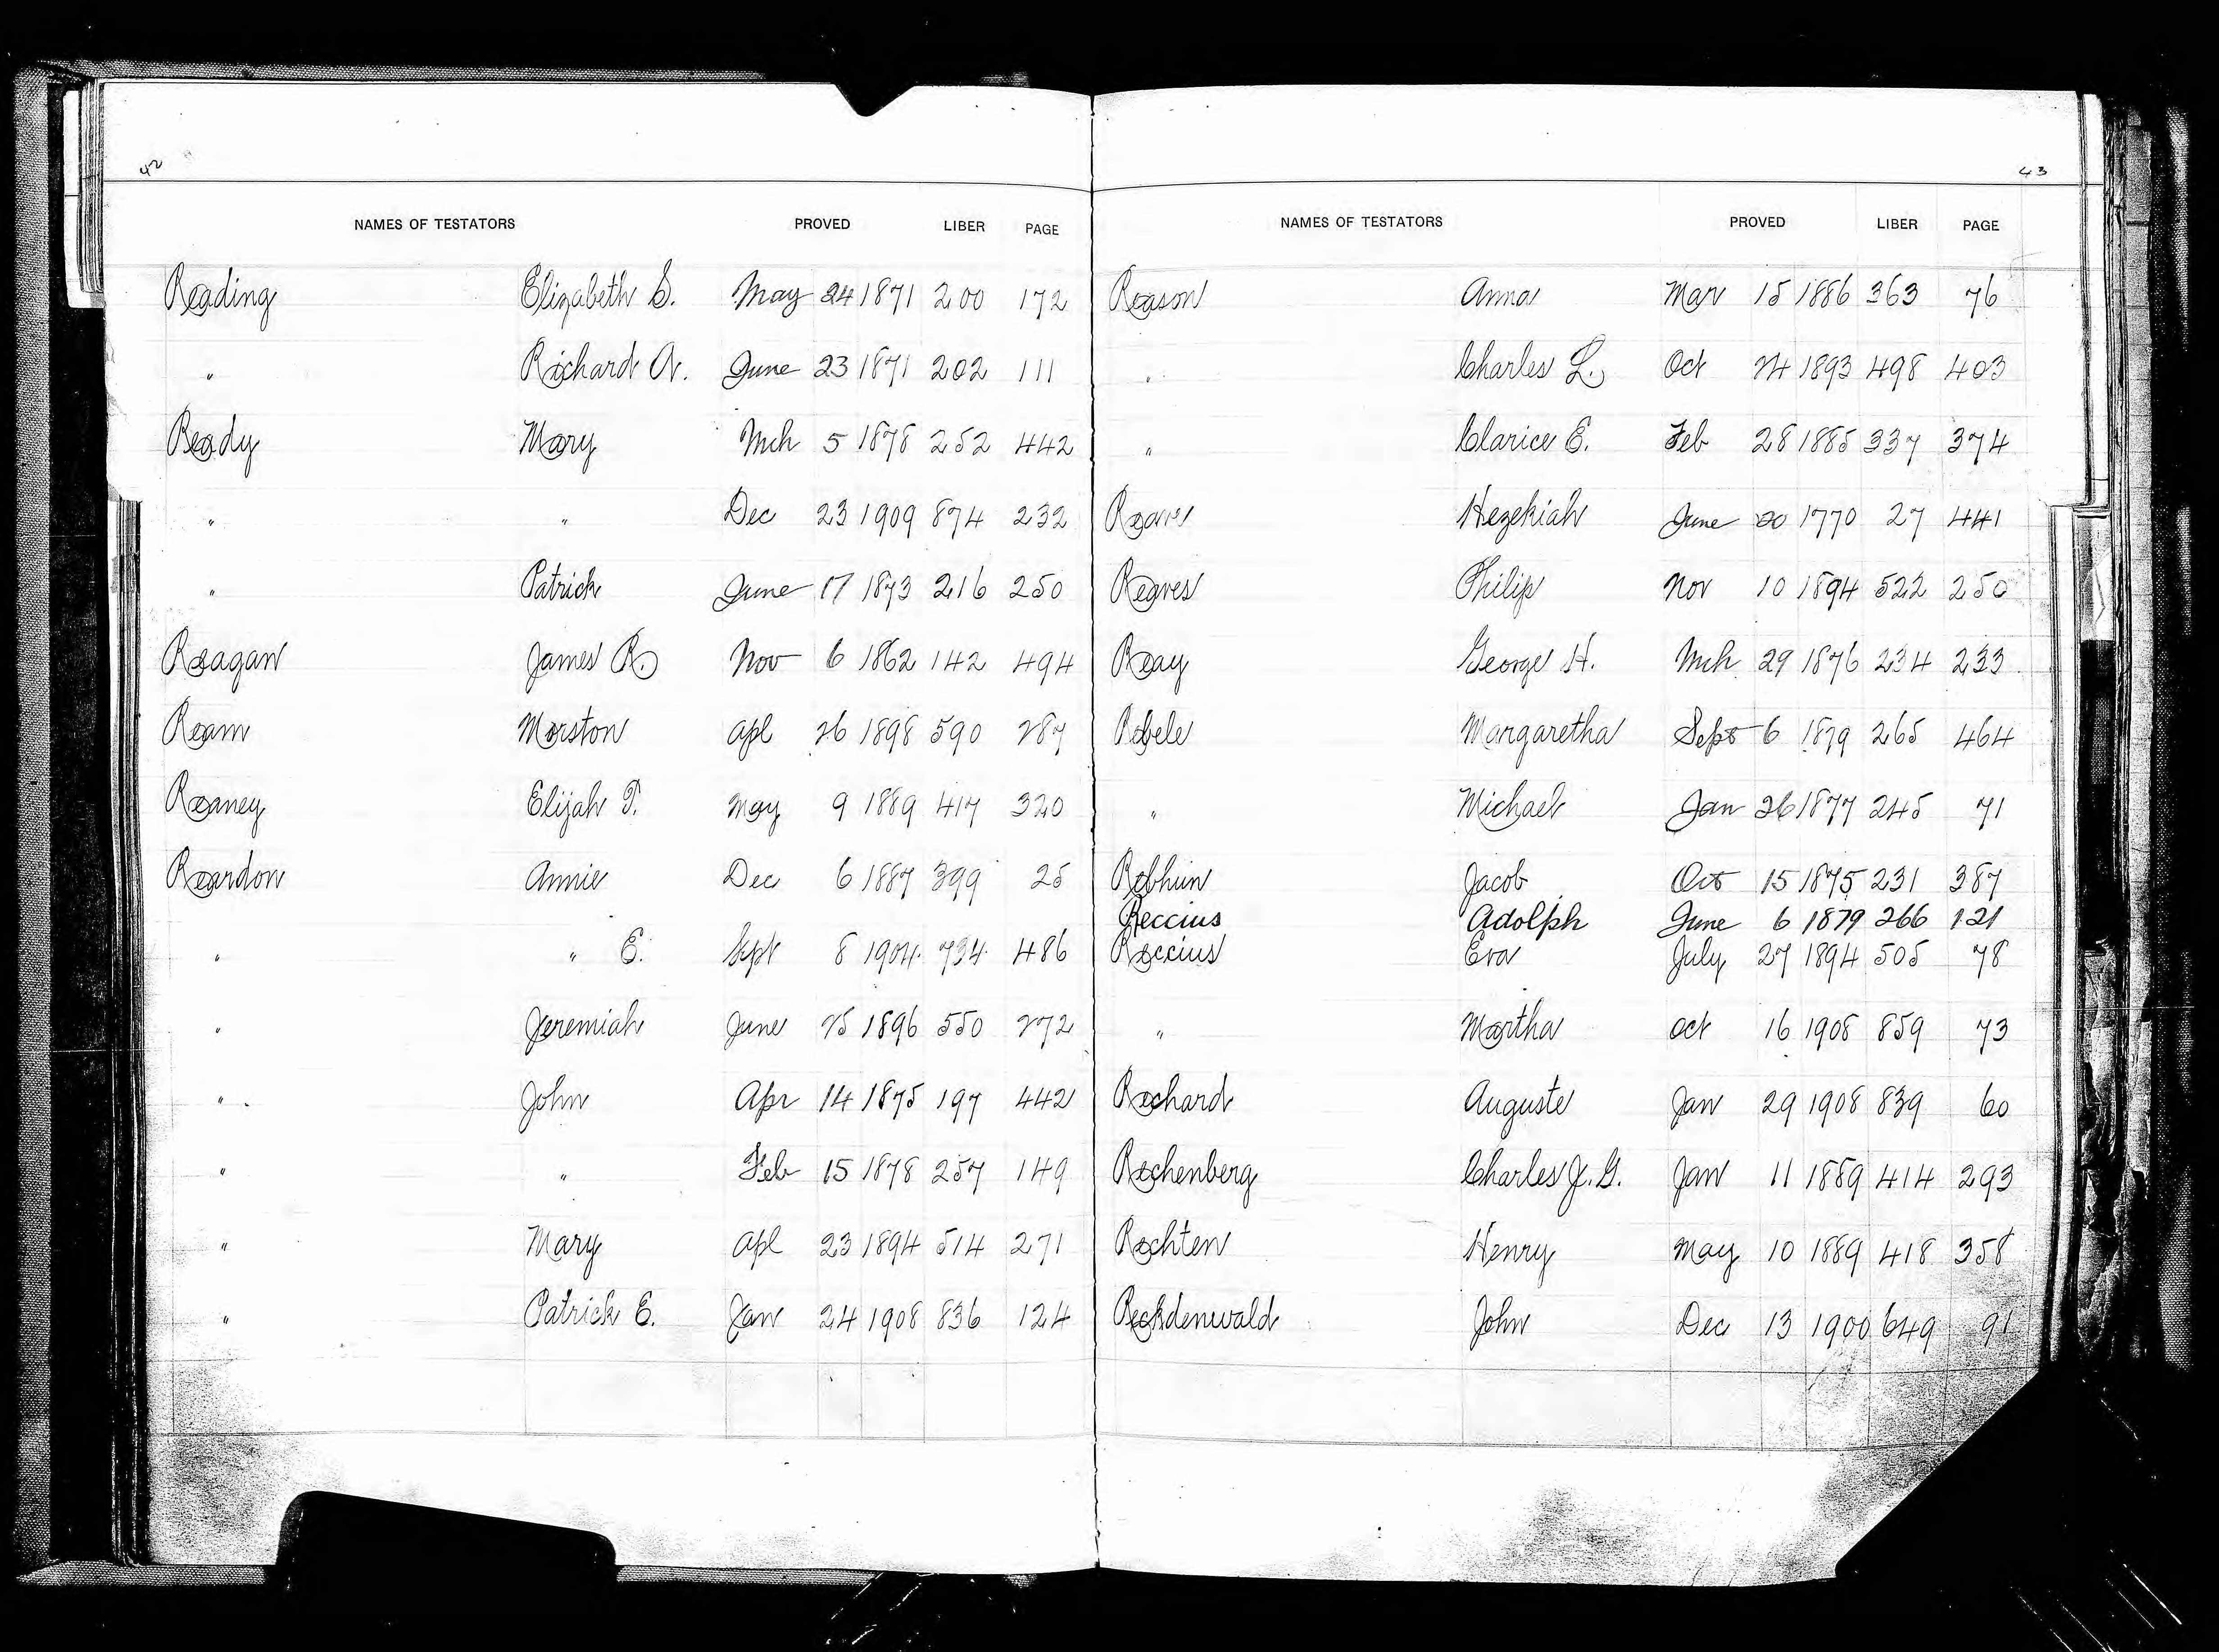 42
NAMES OF TESTATORS PROVED LIBER PAGE
Reading Elizabeth S. May 24 1871 200 172
" Richard A. June 23 1871 202 111
Ready Mary Mch 5 1878 252 442
" " Dec 23 1909 874 232
" Patrick June 17 1873 216 250
Reagan James R. Nov 6 1862 142 494
Ream Morston Apl 26 1898 590 287
Reaney Elijah T. May 9 1889 417 320
Reardon Annie Dec 6 1887 399 25
" " E. Sept 8 1904 734 486
" Jeremiah June 25 1896 550 272
" John Apr 14 1875 197 442
" " Feb 15 1878 257 149
" Mary Apl 23 1894 514 271
" Patrick E. Jan 24 1908 836 124
43
NAMES OF TESTATORS PROVED LIBER PAGE
Reason Anna Mar 15 1886 363 76
" Charles L. Oct 24 1893 498 403
" Clarice E. Feb 28 1885 337 374
Hezekiah June 20 1770 27 441
Reaves Philip Nov 10 1894 522 250
Reay George H. Mch 29 1876 234 233
Rebele Margaretha Sept 6 1879 265 464
" Michael Jan 26 1877 245 71
Rebhun Jacob Oct 15 1875 231 387
Reccius Adolph June 6 1879 266 121
Reccius Eva July 27 1894 505 78
" Martha Oct 16 1908 859 73
Rechard Auguste Jan 29 1908 839 60
Rechenberg Charles J. G. Jan 11 1889 414 293
Rechten Henry May 10 1889 418 358
Reckdenwald John Dec 13 1900 649 91